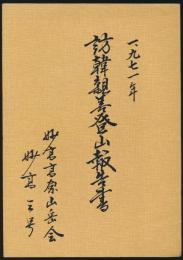 一九七一年
訪韓親善登山報告書
妙高高原山岳会
妙高三号